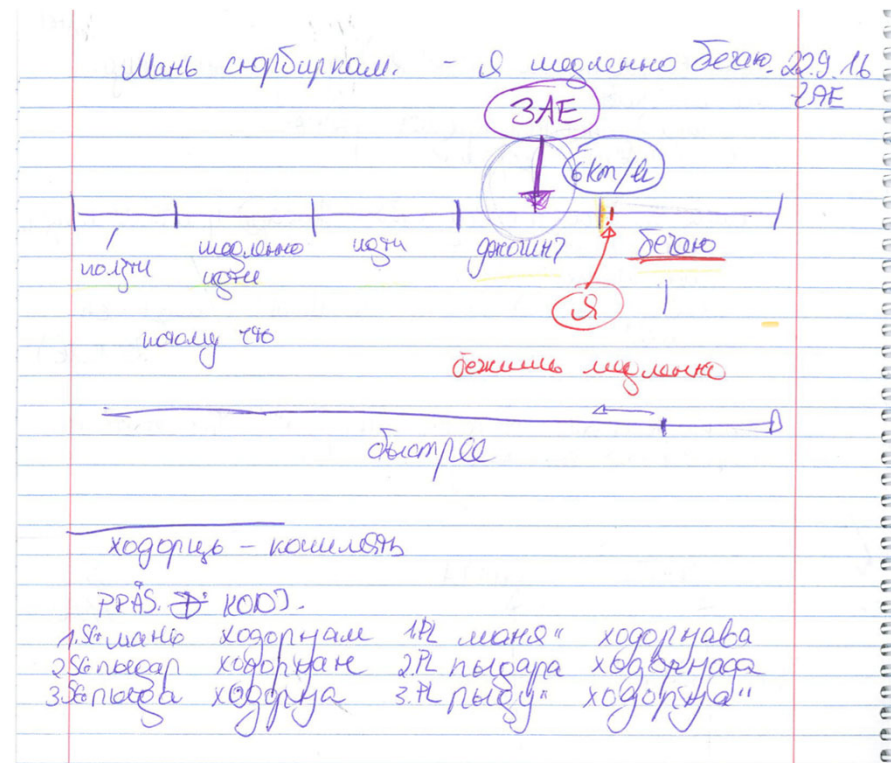 Мань сюрбиркам. - Я медленно бегаю. 22.9.16
ЗАЕ
ЗАЕ
6 km/h
ползти
медленно
идти
идти
джогинг
бегаю
Я
потому что
бежишь медленно
быстрее
ходорць - кашлять
PRÄS. KONJ.
1.SG мань ходорӈам 1.PL маня" ходорӈава
2SG пыдар ходорӈан 2.PL пыдара ходорӈада
3.SG пыда ходорӈа 3.PL пыду" ходорӈа"